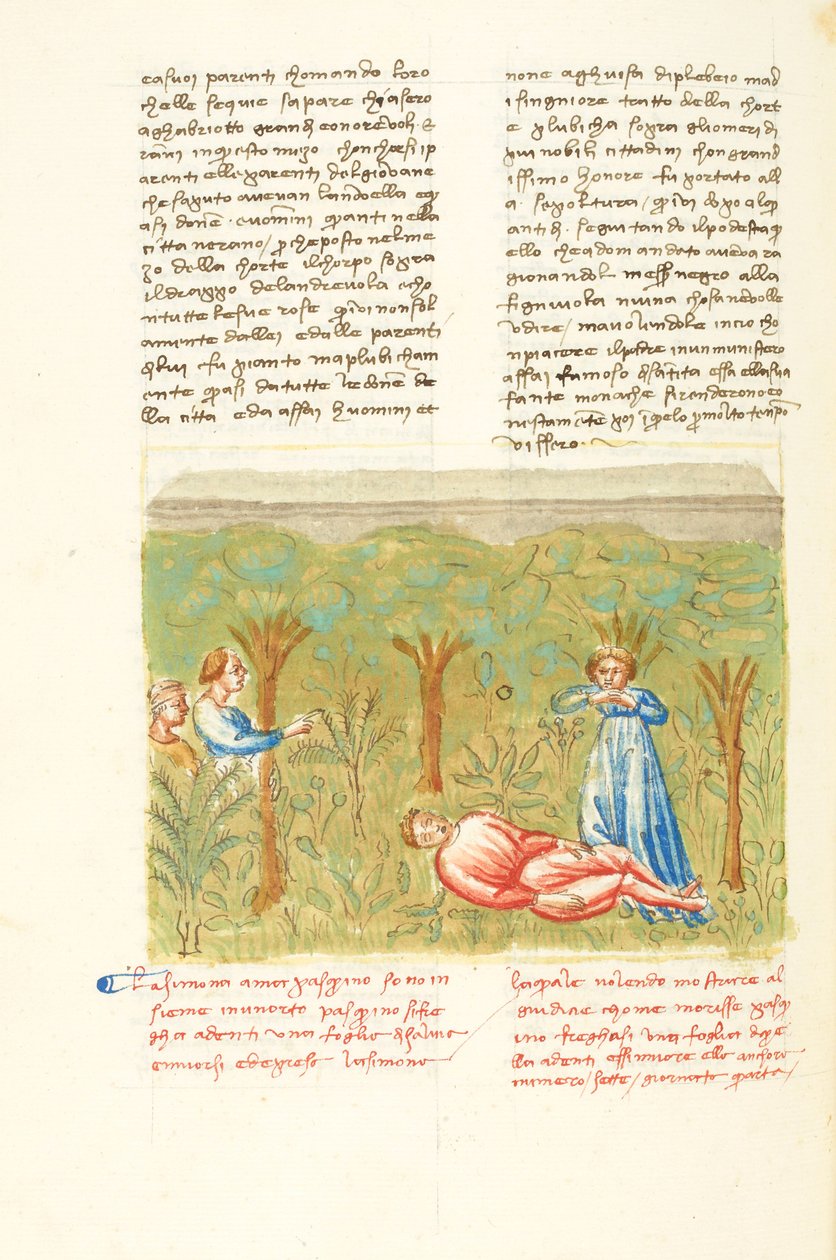 easuoi parenti chomando loro
chelle sequie saparechiasero
aghabriotto grandi eonorevoli. E
rani inquesto mezo chonchorsi ip
arenti elle parenti delgiovane
che saputo aveuan lanovella e qu
asi done. euomini quanti nella
citta nerano / p che posto nel me
zo della chorte ilchorpo sopra
ildrappo delandrevola echo
ntutte lesue rose quivi non sol
amente dallei e dalle parenti
di lui fu pianto ma plubicham
ente quasi da tutte le done de
lla citta eda assai huomini et
none aghuisa diplebeio mad
isingniore tratto della chort
e plubicha sopra gliomeri di
piu nobili cittadini chon grand
issimo honore fu portato all
a sepoltura / quivi dopo alqu
anti di seguitando ilpodesta qu
ello che adomandato aveva ra
gionandol messer negro alla
figniuola niuna chosa nevolle
vdire / ma volendole in cio cho
npiacere ilpadre inunmunistero
assai famoso disantita essa ellasua
fante monache sirenderono eo
nestamente poi in quelo per molto tenpo
vissero.
Lasimona ama pasquino sono in
sieme inunorto pasquino si fre
gha adenti una foglia di salvia
emuorsi ed e presa lasimona
laquale volendo mostrare al
guidice chome morisse pasqu
ino freghasi una foglia di que
lla adenti essimuore ella anchora
numero / sette / giornata quarta /